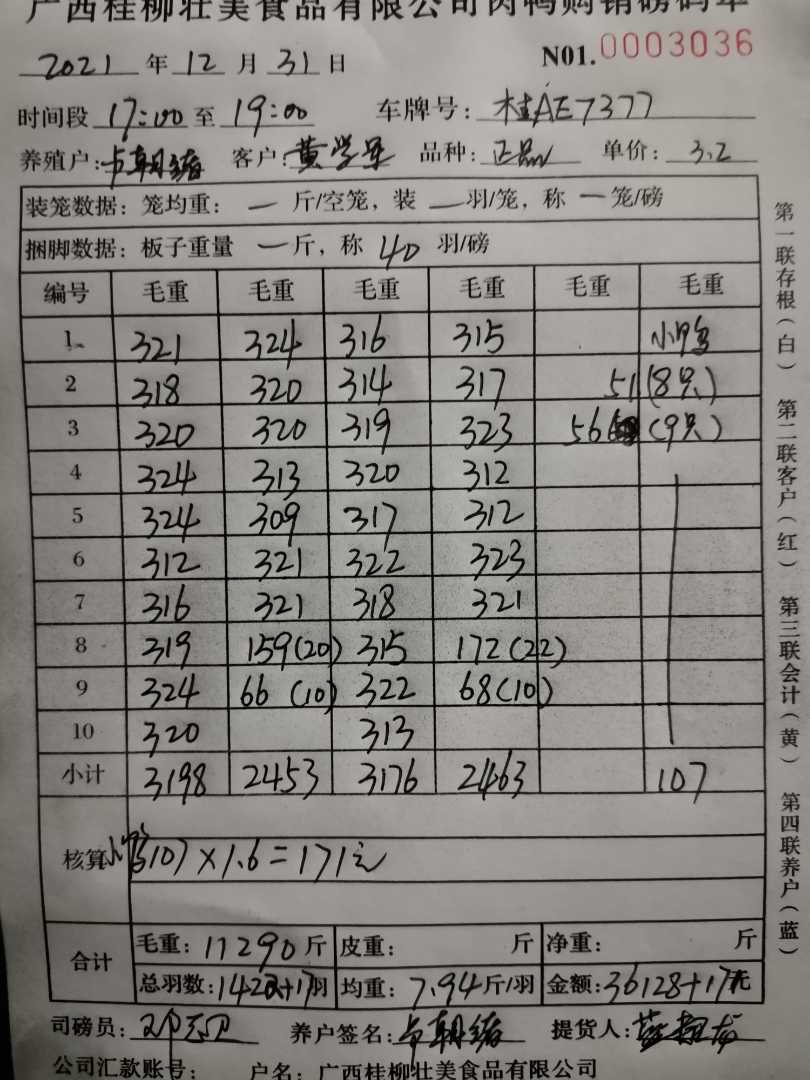 广西桂柳壮美食品有限公司肉鸭购销磅码单
2021 年 12 月 31 日 N01. 0003036
时间段 17:00 至 19:00 车牌号: 桂AE7377
养殖户: 卢朝绪 客户: 黄学军 品种: 正品 单价: 3.2
装笼数据: 笼均重: — 斤/空笼, 装 — 羽/笼, 称 一 笼/磅
捆脚数据: 板子重量 — 斤, 称 40 羽/磅
编号 毛重 毛重 毛重 毛重 毛重 毛重
1 321 324 316 315 小鸭
2 318 320 314 317 51 (8只)
3 320 320 319 323 56 (9只)
4 324 313 320 312
5 324 309 317 312
6 312 321 322 323
7 316 321 318 321
8 319 159(20) 315 172(22)
9 324 66 (10) 322 68(10)
10 320 313
小计 3198 2453 3176 2463 107
核算 小鸭107×1.6=171元
合计 毛重: 11290 斤 皮重: 斤 净重: 斤
总羽数: 1422+17羽 均重: 7.94斤/羽 金额: 36128+17元
司磅员: 邓 养户签名: 卢朝绪 提货人:
公司汇款账号: 户名: 广西桂柳壮美食品有限公司
第一联存根(白) 第二联客户(红) 第三联会计(黄) 第四联养户(蓝)